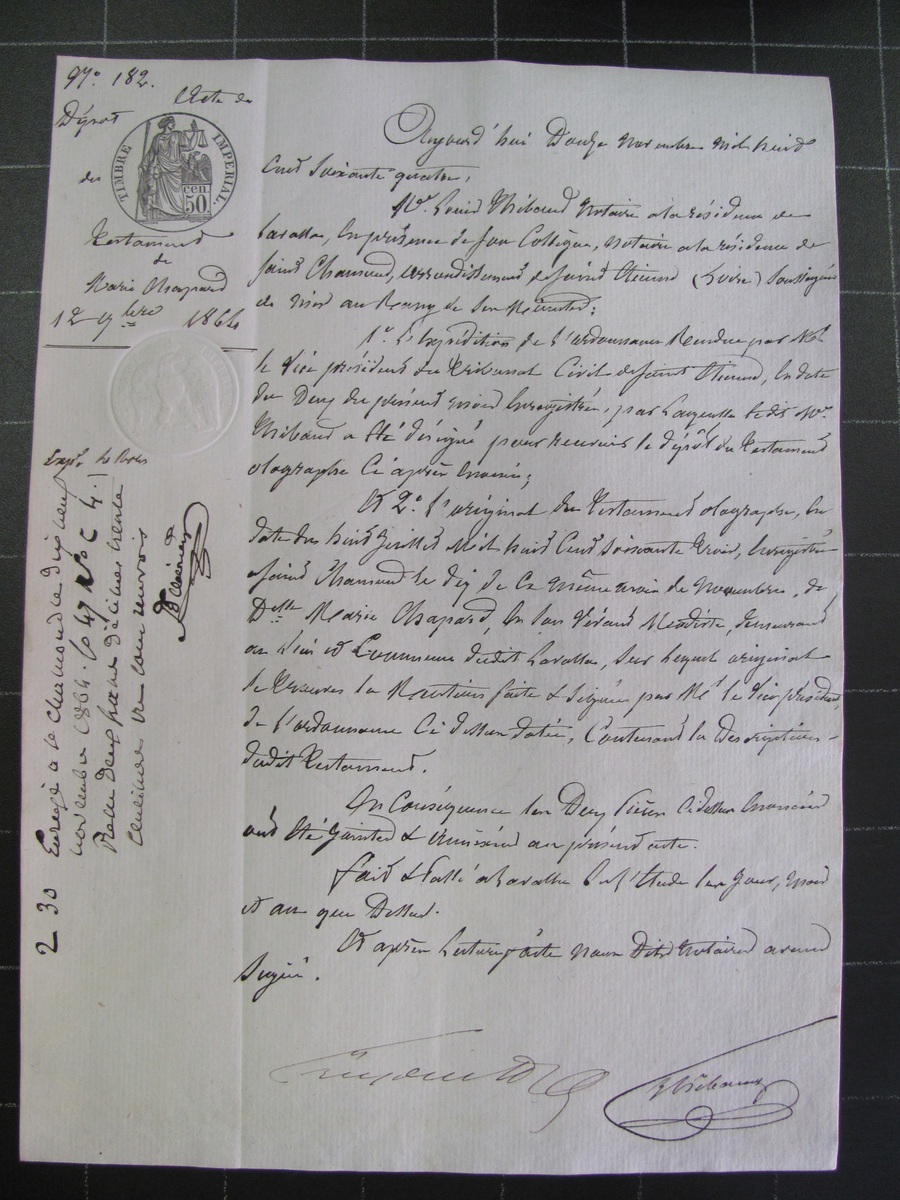 N.o 182.
Acte de
Dépôt
du
TIMBRE IMPERIAL.
50 cen.
Testament
de
Marie Chapard
12 9bre 1864
Aujourd'hui Douze Novembre mil huit
Cent Soixante quatre,
Me. Louis Thibaud Notaire à la résidence de
Lavalla, En présence de son Collègue, notaire à la résidence de
Saint Chamond, arrondissement de Saint Etienne (Loire) Soussignés
au Rang de Ses Minutes:
1o. L'Expédition de l'ordonnance Rendue par Mr
le Vice président du Tribunal Civil de Saint Etienne, En date
du Deux du présent mois Enregistrée, par Laquelle ledit Me.
Thibaud a Eté désigné pour recevoir le dépôt du Testament
olographe Ci après Enoncé;
Et 2o. l'original du Testament olographe, En
date du huit Juillet Mil huit Cent Soixante trois, Enregistré
à Saint Chamond le dix de Ce même mois de Novembre, de
Dlle Marie Chapard, En Son vivant Modiste, demeurant
au lieu et Commune dudit Lavalla, Sur Lequel original
Se trouve La Mention faite & Signée par Mr le Vice président,
de l'ordonnance Ci dessus datée, Contenant la Description
dudit Testament.
En Conséquence les Deux pièces Ci dessus Enoncées
ont Eté Jointes & Annexées au présent acte.
Fait & Passé à Lavalla En l'Etude Les Jour, mois
et an que Dessus.
Et après Lecture faite nous Dits Notaires avons
Signé.
Enregé à St Chamond le dix neuf
novembre 1864. fo 47 Ro C 4.
Reçu Deux francs décimes trente
centimes
2 30
Thibaud